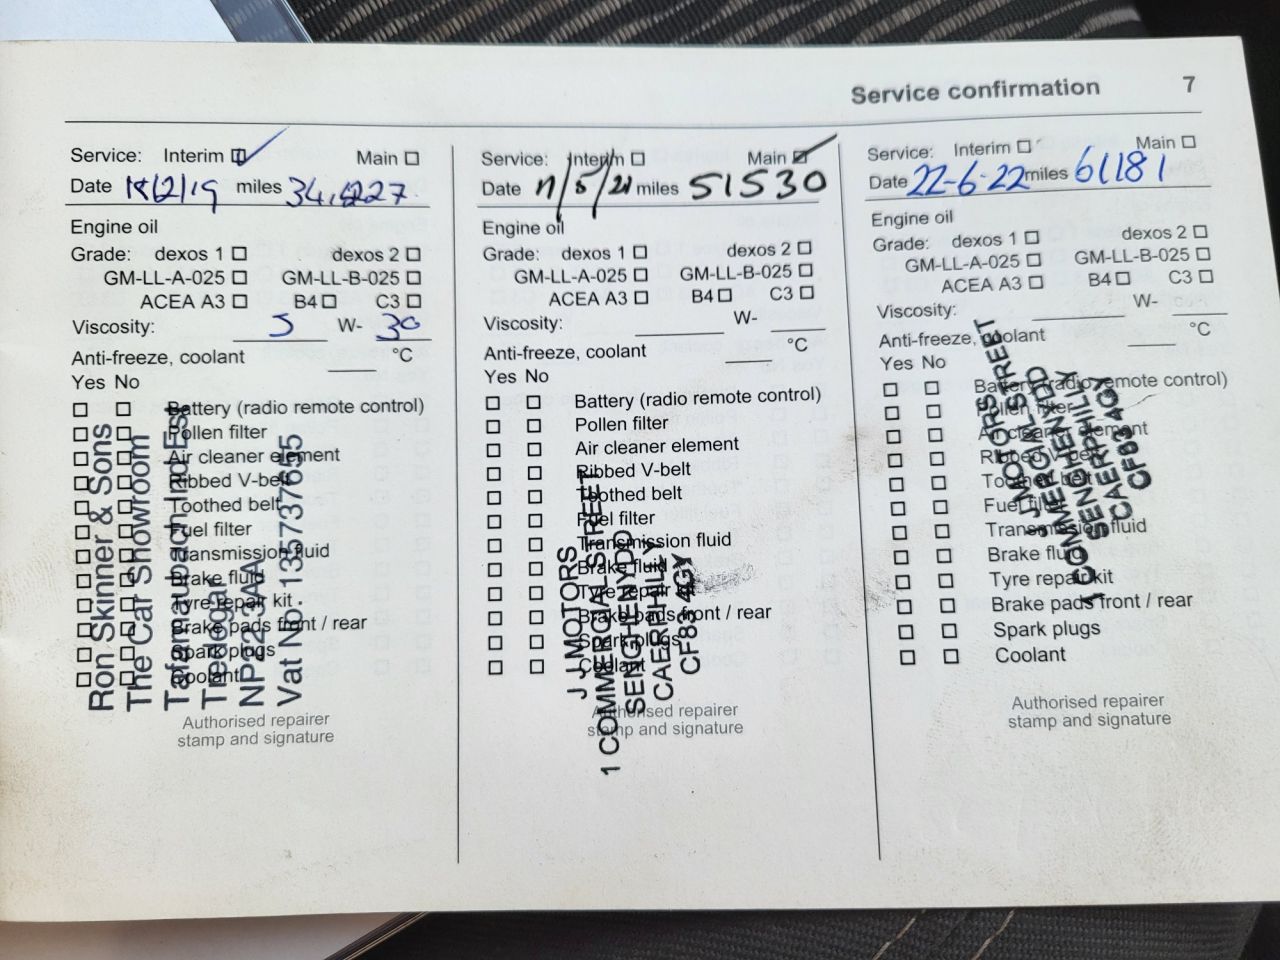 Service confirmation 7
Service: Interim Main
Date 18/2/19 miles
Engine oil
Grade: dexos 1 dexos 2
GM-LL-A-025 GM-LL-B-025
ACEA A3 B4 C3
Viscosity: 5 W- 30
Anti-freeze, coolant °C
Yes No
Battery (radio remote control)
Pollen filter
Air cleaner element
Ribbed V-belt
Toothed belt
Fuel filter
Transmission fluid
Brake fluid
Tyre repair kit
Brake pads front / rear
Spark plugs
Coolant
Ron Skinner & Sons
The Car Showroom
Tafarnaubach Ind Est
Tredegar
NP22 3AA
Vat No. 135737655
Authorised repairer
stamp and signature
Service: Interim Main
Date miles 51530
Engine oil
Grade: dexos 1 dexos 2
GM-LL-A-025 GM-LL-B-025
ACEA A3 B4 C3
Viscosity: W-
Anti-freeze, coolant °C
Yes No
Battery (radio remote control)
Pollen filter
Air cleaner element
Ribbed V-belt
Toothed belt
Fuel filter
Transmission fluid
Brake fluid
Tyre repair kit
Brake pads front / rear
Spark plugs
Coolant
J J MOTORS
1 COMMERCIAL STREET
SENGHENYDD
CAERPHILLY
CF83 4GY
Authorised repairer
stamp and signature
Service: Interim Main
Date 22-6-22 miles 61181
Engine oil
Grade: dexos 1 dexos 2
GM-LL-A-025 GM-LL-B-025
ACEA A3 B4 C3
Viscosity: W-
Anti-freeze, coolant °C
Yes No
Battery (radio remote control)
Pollen filter
Air cleaner element
Ribbed V-belt
Toothed belt
Fuel filter
Transmission fluid
Brake fluid
Tyre repair kit
Brake pads front / rear
Spark plugs
Coolant
J J MOTORS
1 COMMERCIAL STREET
SENGHENYDD
CAERPHILLY
CF83 4GY
Authorised repairer
stamp and signature